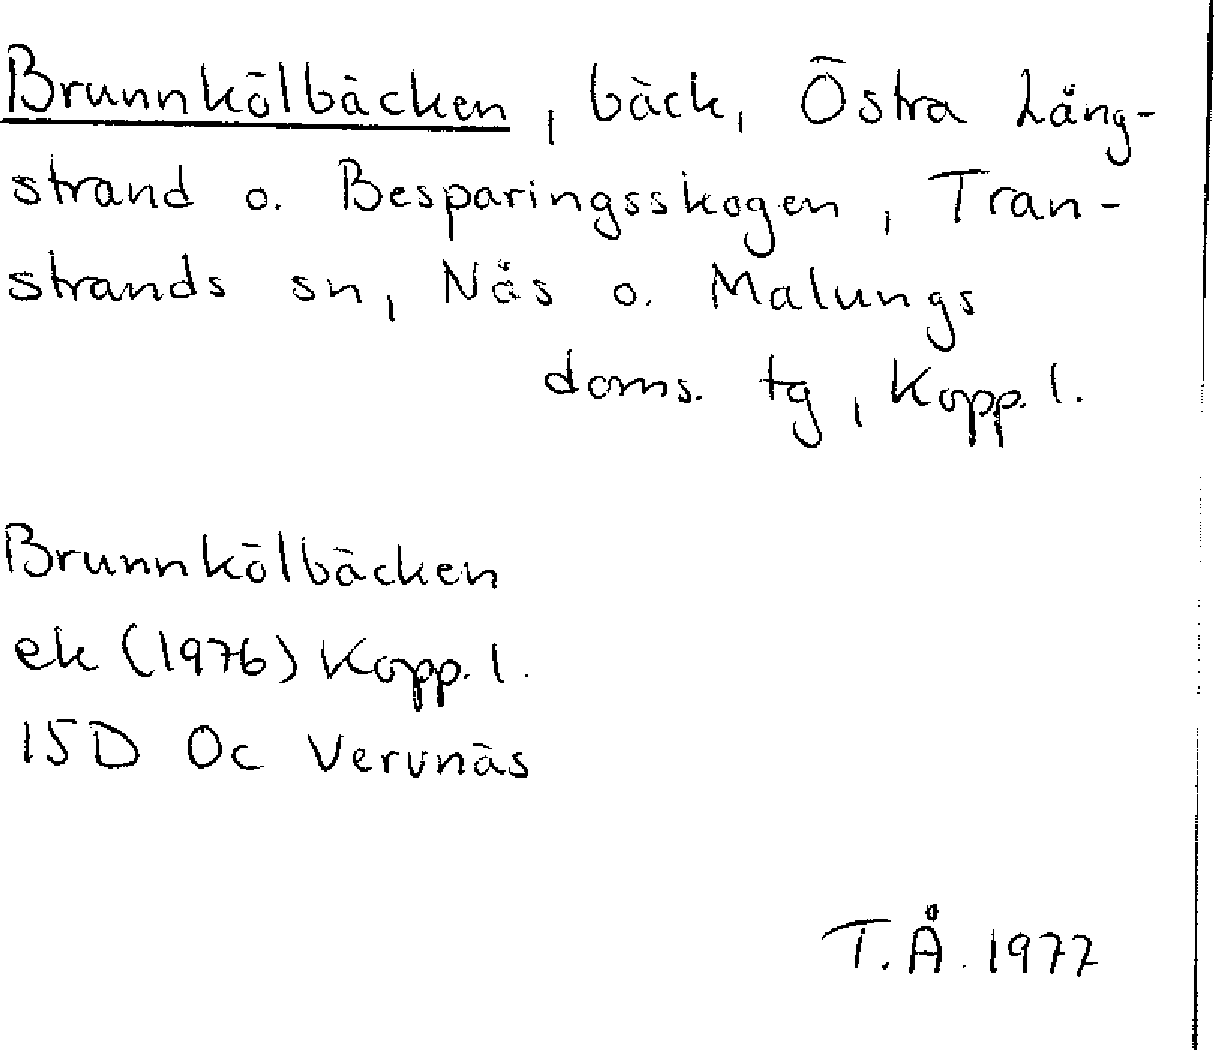 Brunnkölbäcken, bäck, Östra Lång-
strand o. Besparingsskogen, Tran-
strands sn, Nås o. Malungs
doms. tg, Kopp. l.
Brunnkölbäcken
ek (1976) Kopp. l.
15D 0c Vervnäs
T.Å. 1977